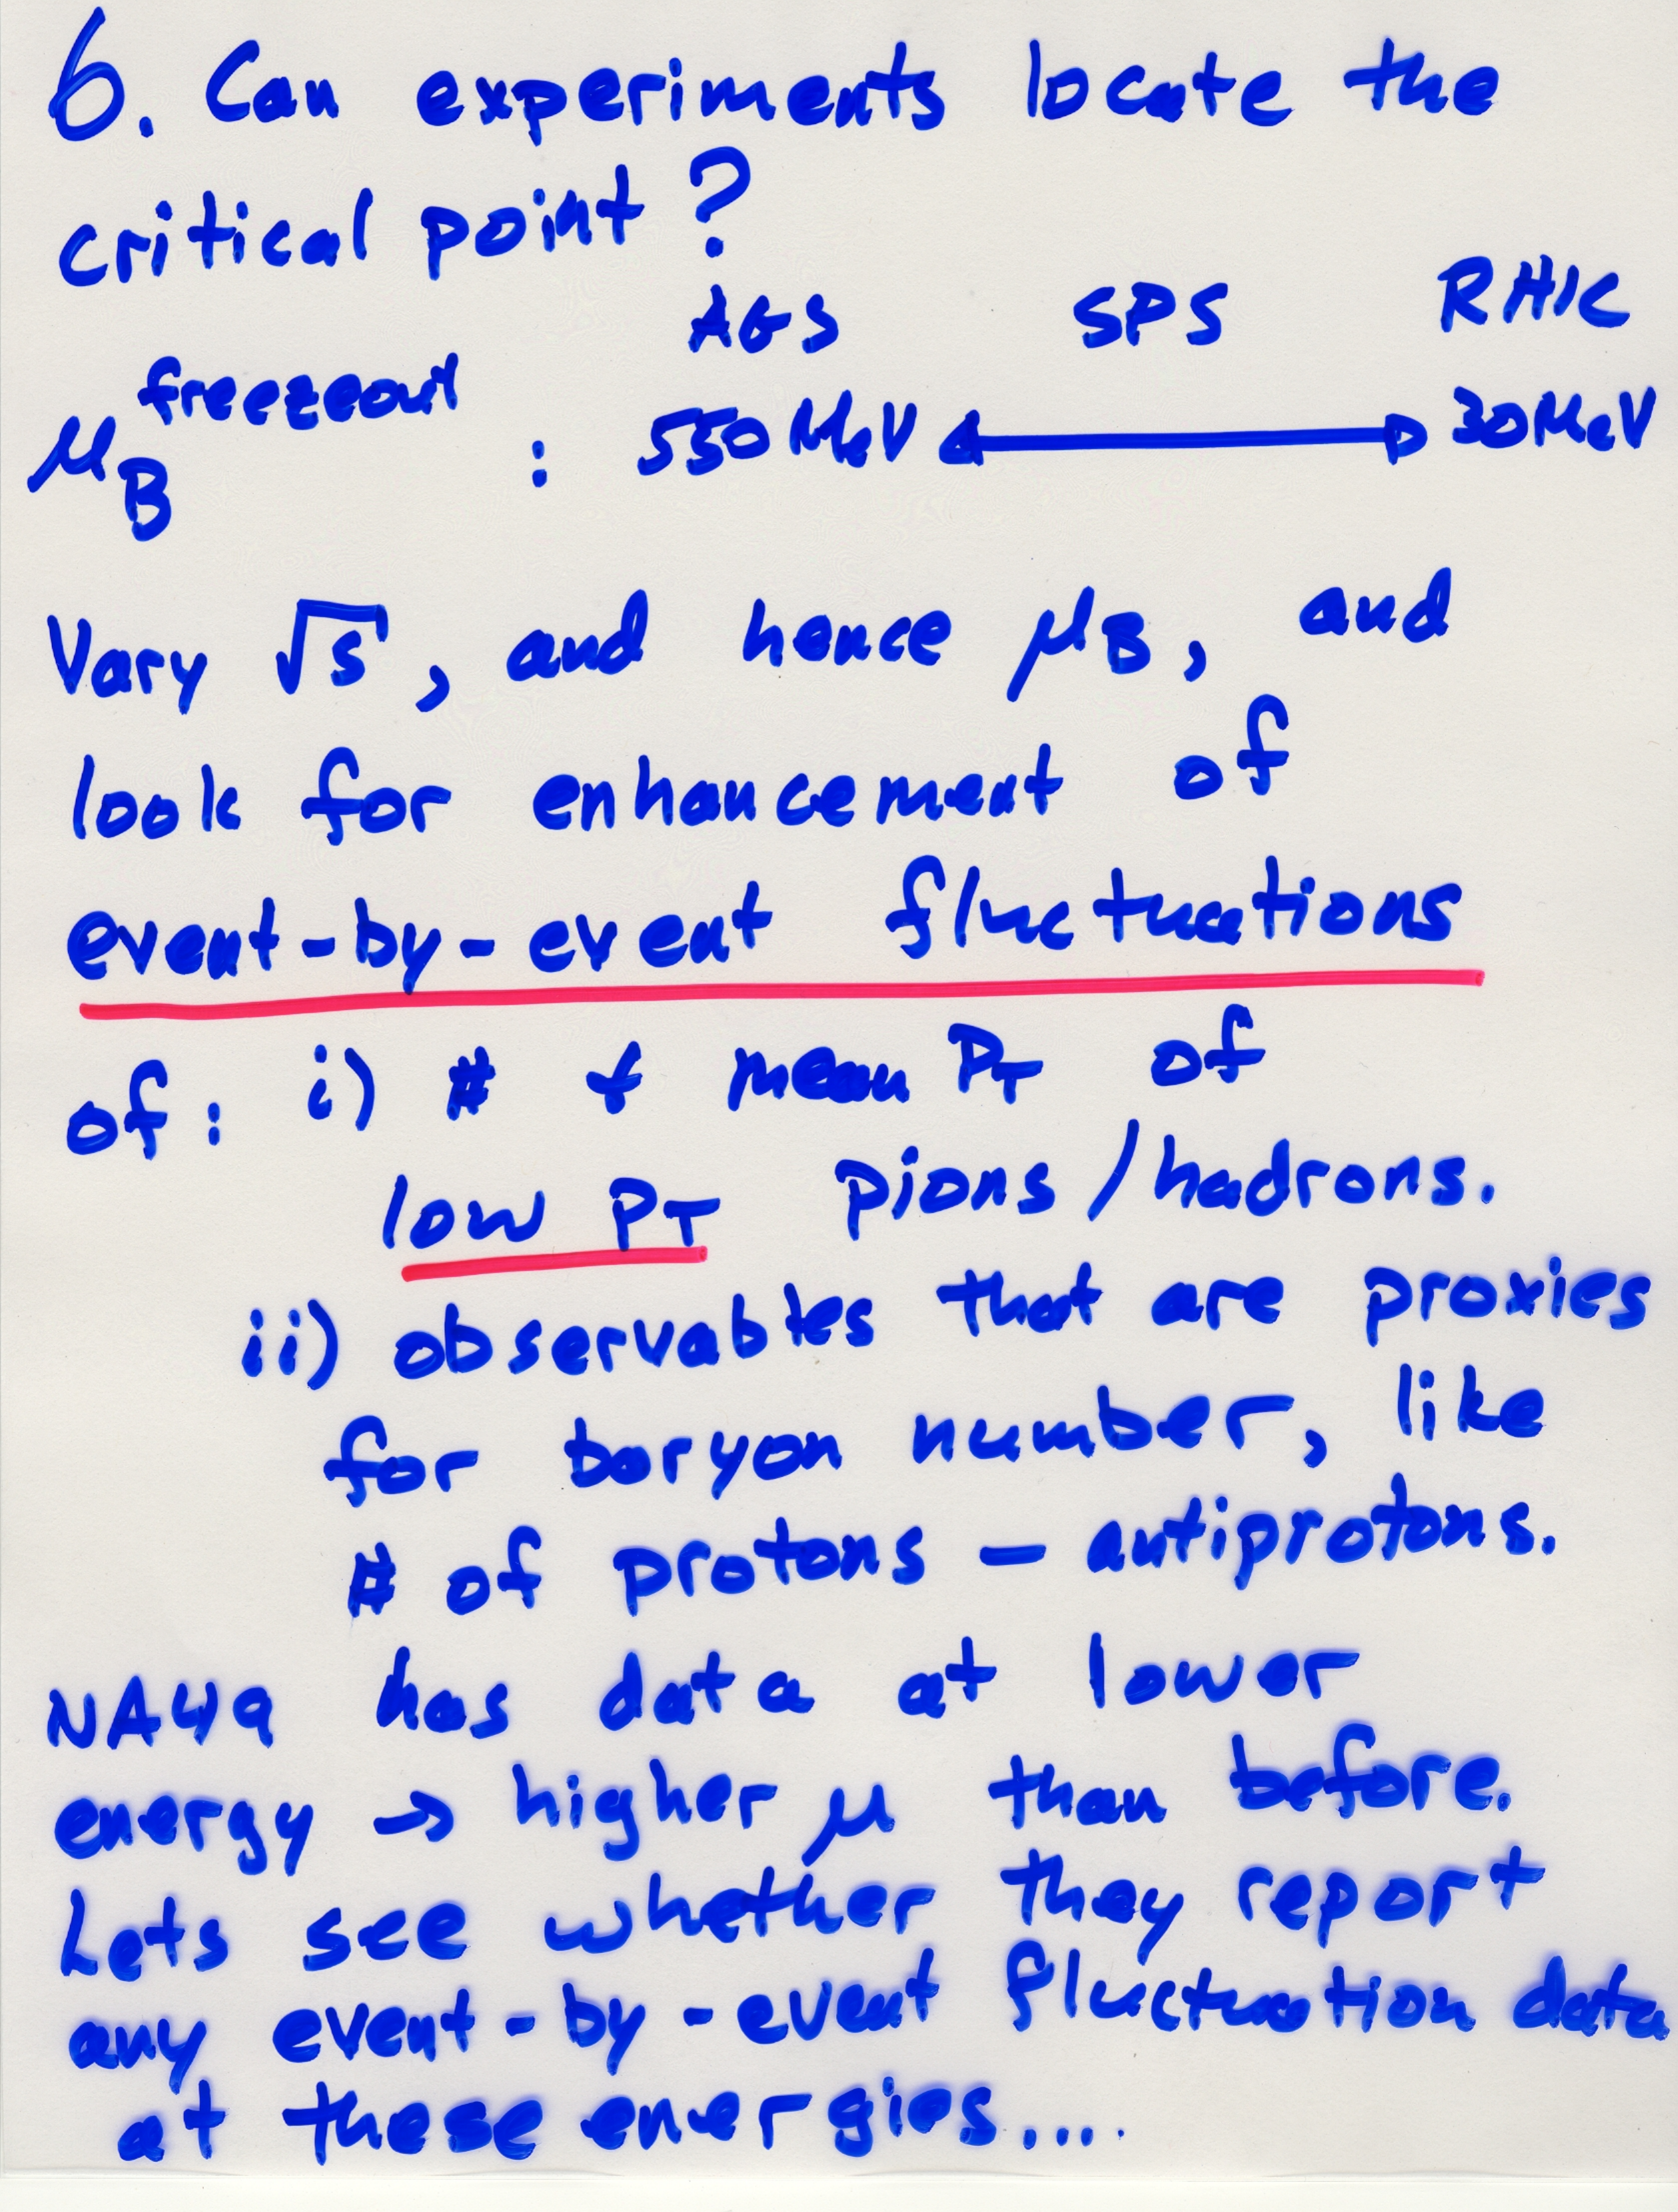 6. Can experiments locate the
critical point?
AGS SPS RHIC
μ_B^freezeout : 550 MeV ↔ 30 MeV
Vary √s, and hence μ_B, and
look for enhancement of
event-by-event fluctuations
of: i) # & mean P_T of
low P_T pions/hadrons.
ii) observables that are proxies
for baryon number, like
# of protons – antiprotons.
NA49 has data at lower
energy → higher μ than before.
Lets see whether they report
any event-by-event fluctuation data
at these energies....